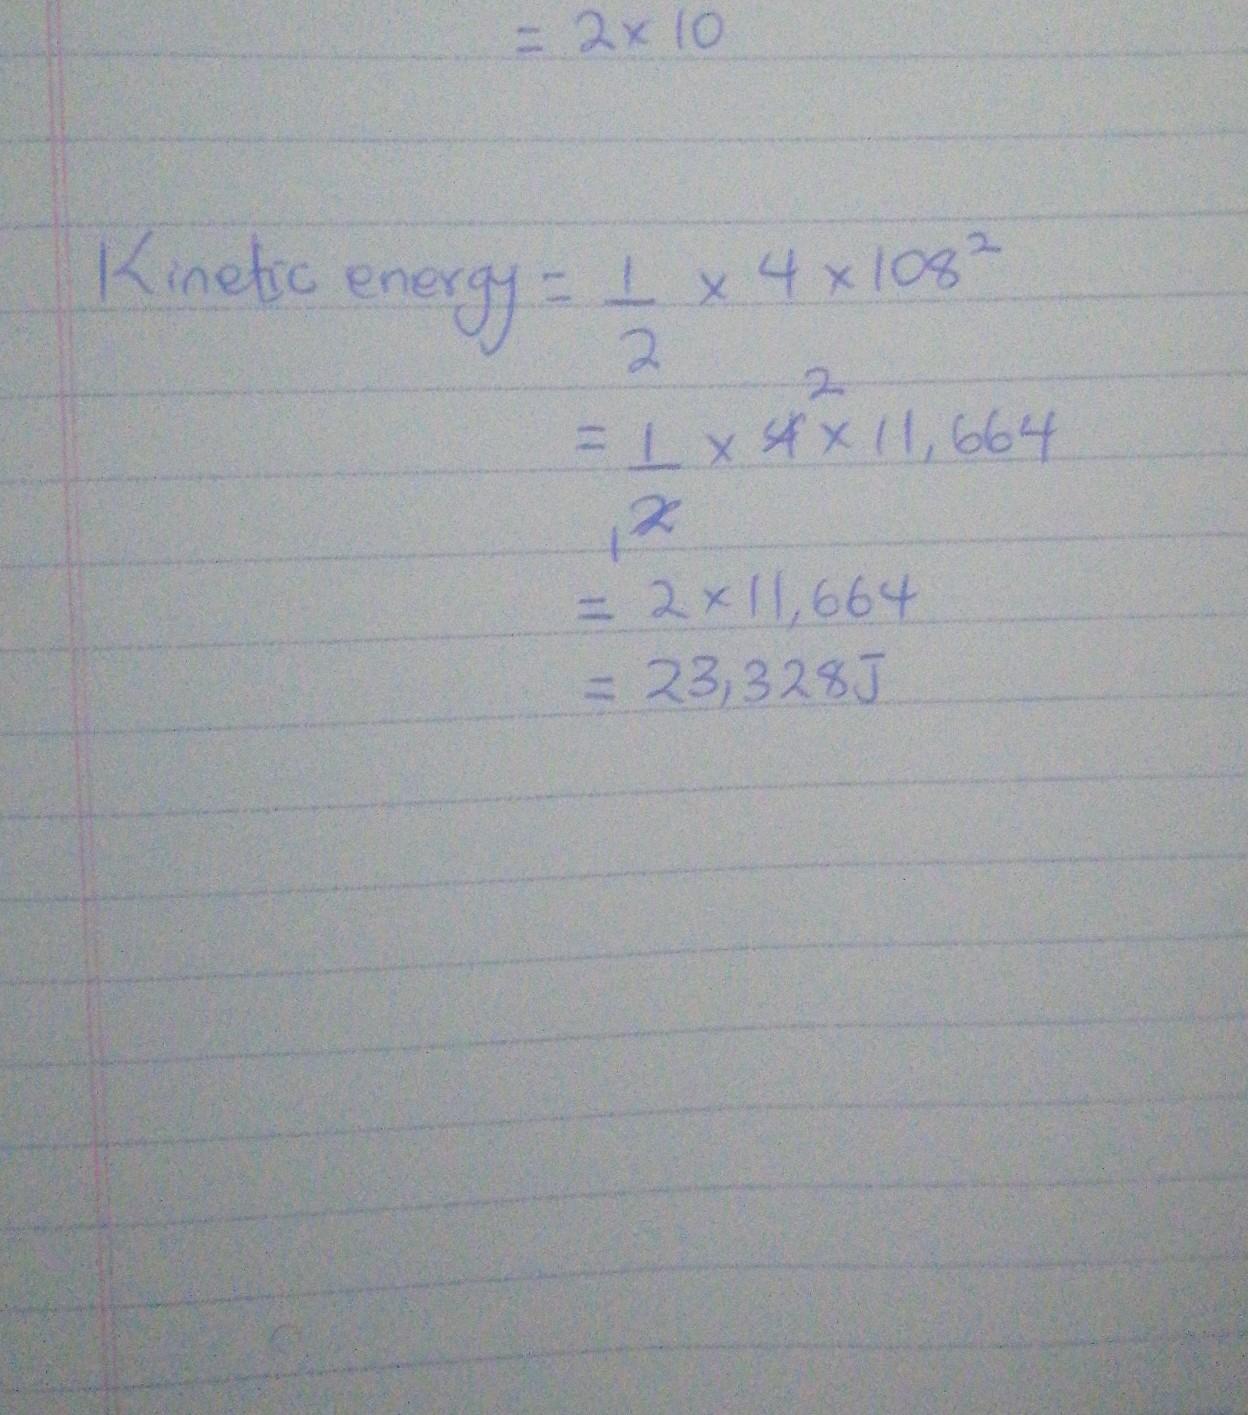 = 2 × 10
Kinetic energy = 1/2 × 4 × 108²
= 1/2 1 × 4 2 × 11,664
= 2 × 11,664
= 23,328J